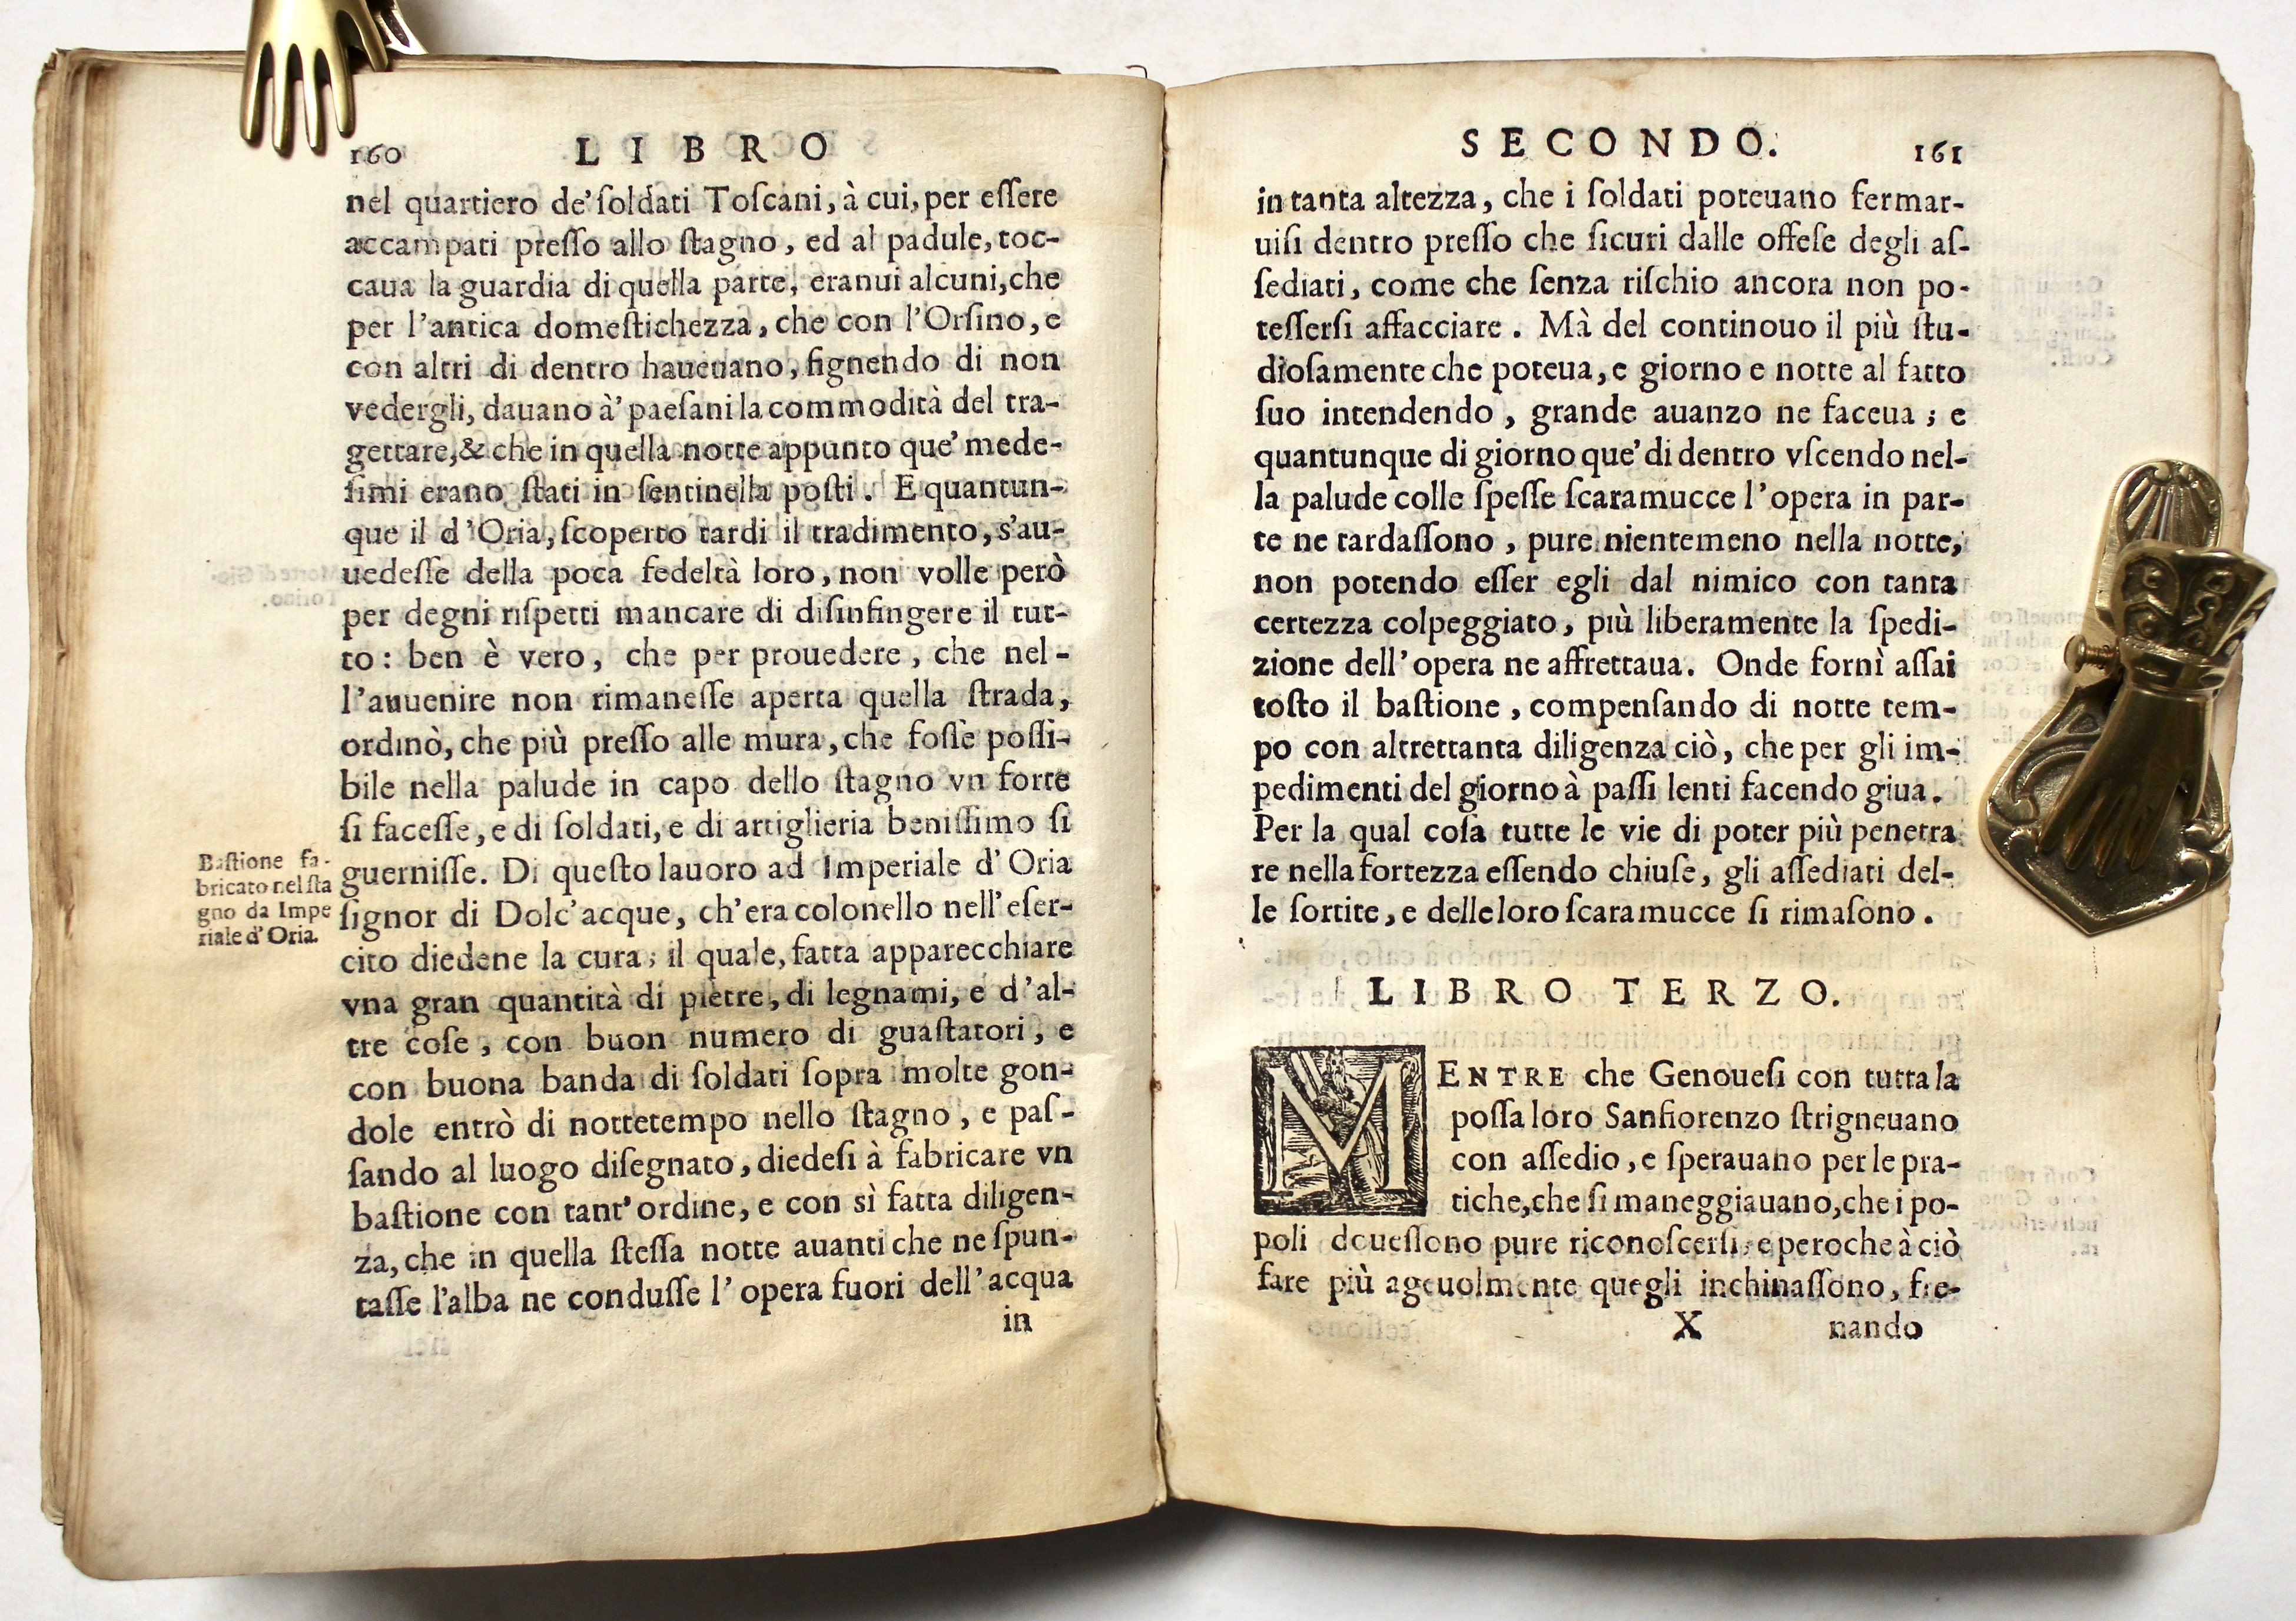 160 LIBRO
nel quartiero de' ſoldati Toſcani, à cui, per eſſere
accampati preſſo allo ſtagno, ed al padule, toc-
caua la guardia di quella parte, eranui alcuni, che
per l'antica domeſtichezza, che con l'Orſino, e
con altri di dentro haueuano, fignendo di non
vedergli, dauano à' paeſani la commodità del tra-
gettare, & che in quella notte appunto que' mede-
ſimi erano ſtati in ſentinella poſti. E quantun-
que il d'Oria, ſcoperto tardi il tradimento, s'au-
uedeſſe della poca fedeltà loro, non volle però
per degni riſpetti mancare di diſinfingere il tut-
to: ben è vero, che per prouedere, che nel-
l'auuenire non rimaneſſe aperta quella ſtrada,
ordinò, che più preſſo alle mura, che foſſe poſſi-
bile nella palude in capo dello ſtagno vn forte
ſi faceſſe, e di ſoldati, e di artiglieria beniſſimo ſi
guerniſſe. Di queſto lauoro ad Imperiale d'Oria
ſignor di Dolc'acque, ch'era colonello nell'eſer-
cito diedene la cura; il quale, fatta apparecchiare
vna gran quantità di pietre, di legnami, e d'al-
tre coſe, con buon numero di guaſtatori, e
con buona banda di ſoldati ſopra molte gon-
dole entrò di nottetempo nello ſtagno, e paſ-
ſando al luogo diſegnato, diedeſi à fabricare vn
baſtione con tant'ordine, e con sì fatta diligen-
za, che in quella ſteſſa notte auanti che ne ſpun-
taſſe l'alba ne conduſſe l'opera fuori dell'acqua
in
Baſtione fa-
bricato nel ſta
gno da Impe
riale d'Oria.
SECONDO. 161
in tanta altezza, che i ſoldati poteuano fermar-
uiſi dentro preſſo che ſicuri dalle offeſe degli aſ-
ſediati, come che ſenza riſchio ancora non po-
teſſerſi affacciare. Mà del continouo il più ſtu-
dioſamente che poteua, e giorno e notte al fatto
ſuo intendendo, grande auanzo ne faceua; e
quantunque di giorno que' di dentro vſcendo nel-
la palude colle ſpeſſe ſcaramucce l'opera in par-
te ne tardaſſono, pure nientemeno nella notte,
non potendo eſſer egli dal nimico con tanta
certezza colpeggiato, più liberamente la ſpedi-
zione dell'opera ne affrettaua. Onde fornì aſſai
toſto il baſtione, compenſando di notte tem-
po con altrettanta diligenza ciò, che per gli im-
pedimenti del giorno à paſſi lenti facendo giua.
Per la qual coſa tutte le vie di poter più penetra
re nella fortezza eſſendo chiuſe, gli aſſediati del-
le ſortite, e delle loro ſcaramucce ſi rimaſono.
LIBRO TERZO.
MENTRE che Genoueſi con tutta la
poſſa loro Sanfiorenzo ſtrigneuano
con aſſedio, e ſperauano per le pra-
tiche, che ſi maneggiauano, che i po-
poli doueſſono pure riconoſcerſi; e peroche à ciò
fare più ageuolmente quegli inchinaſſono, fre-
X nando